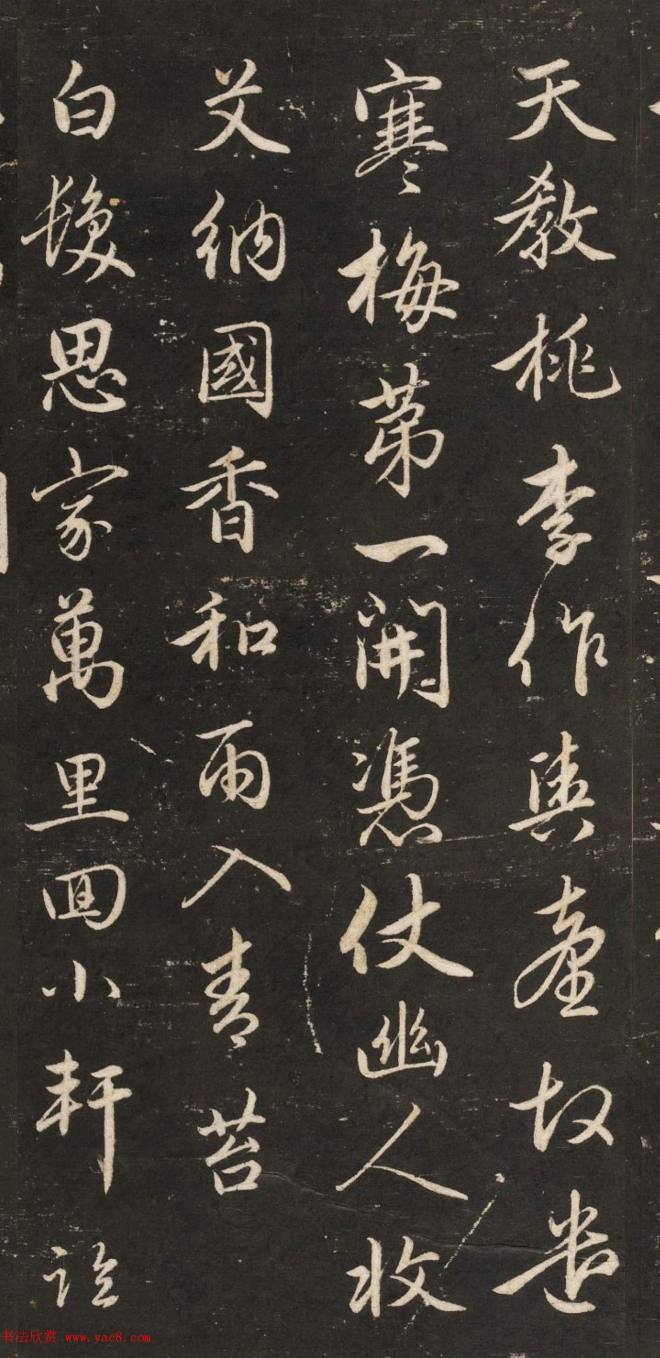 天教桃李作輿臺故遣
寒梅第一開憑仗幽人收
艾納國香和雨入青苔
白髮思家萬里回小軒
书法欣赏 www.yac8.com